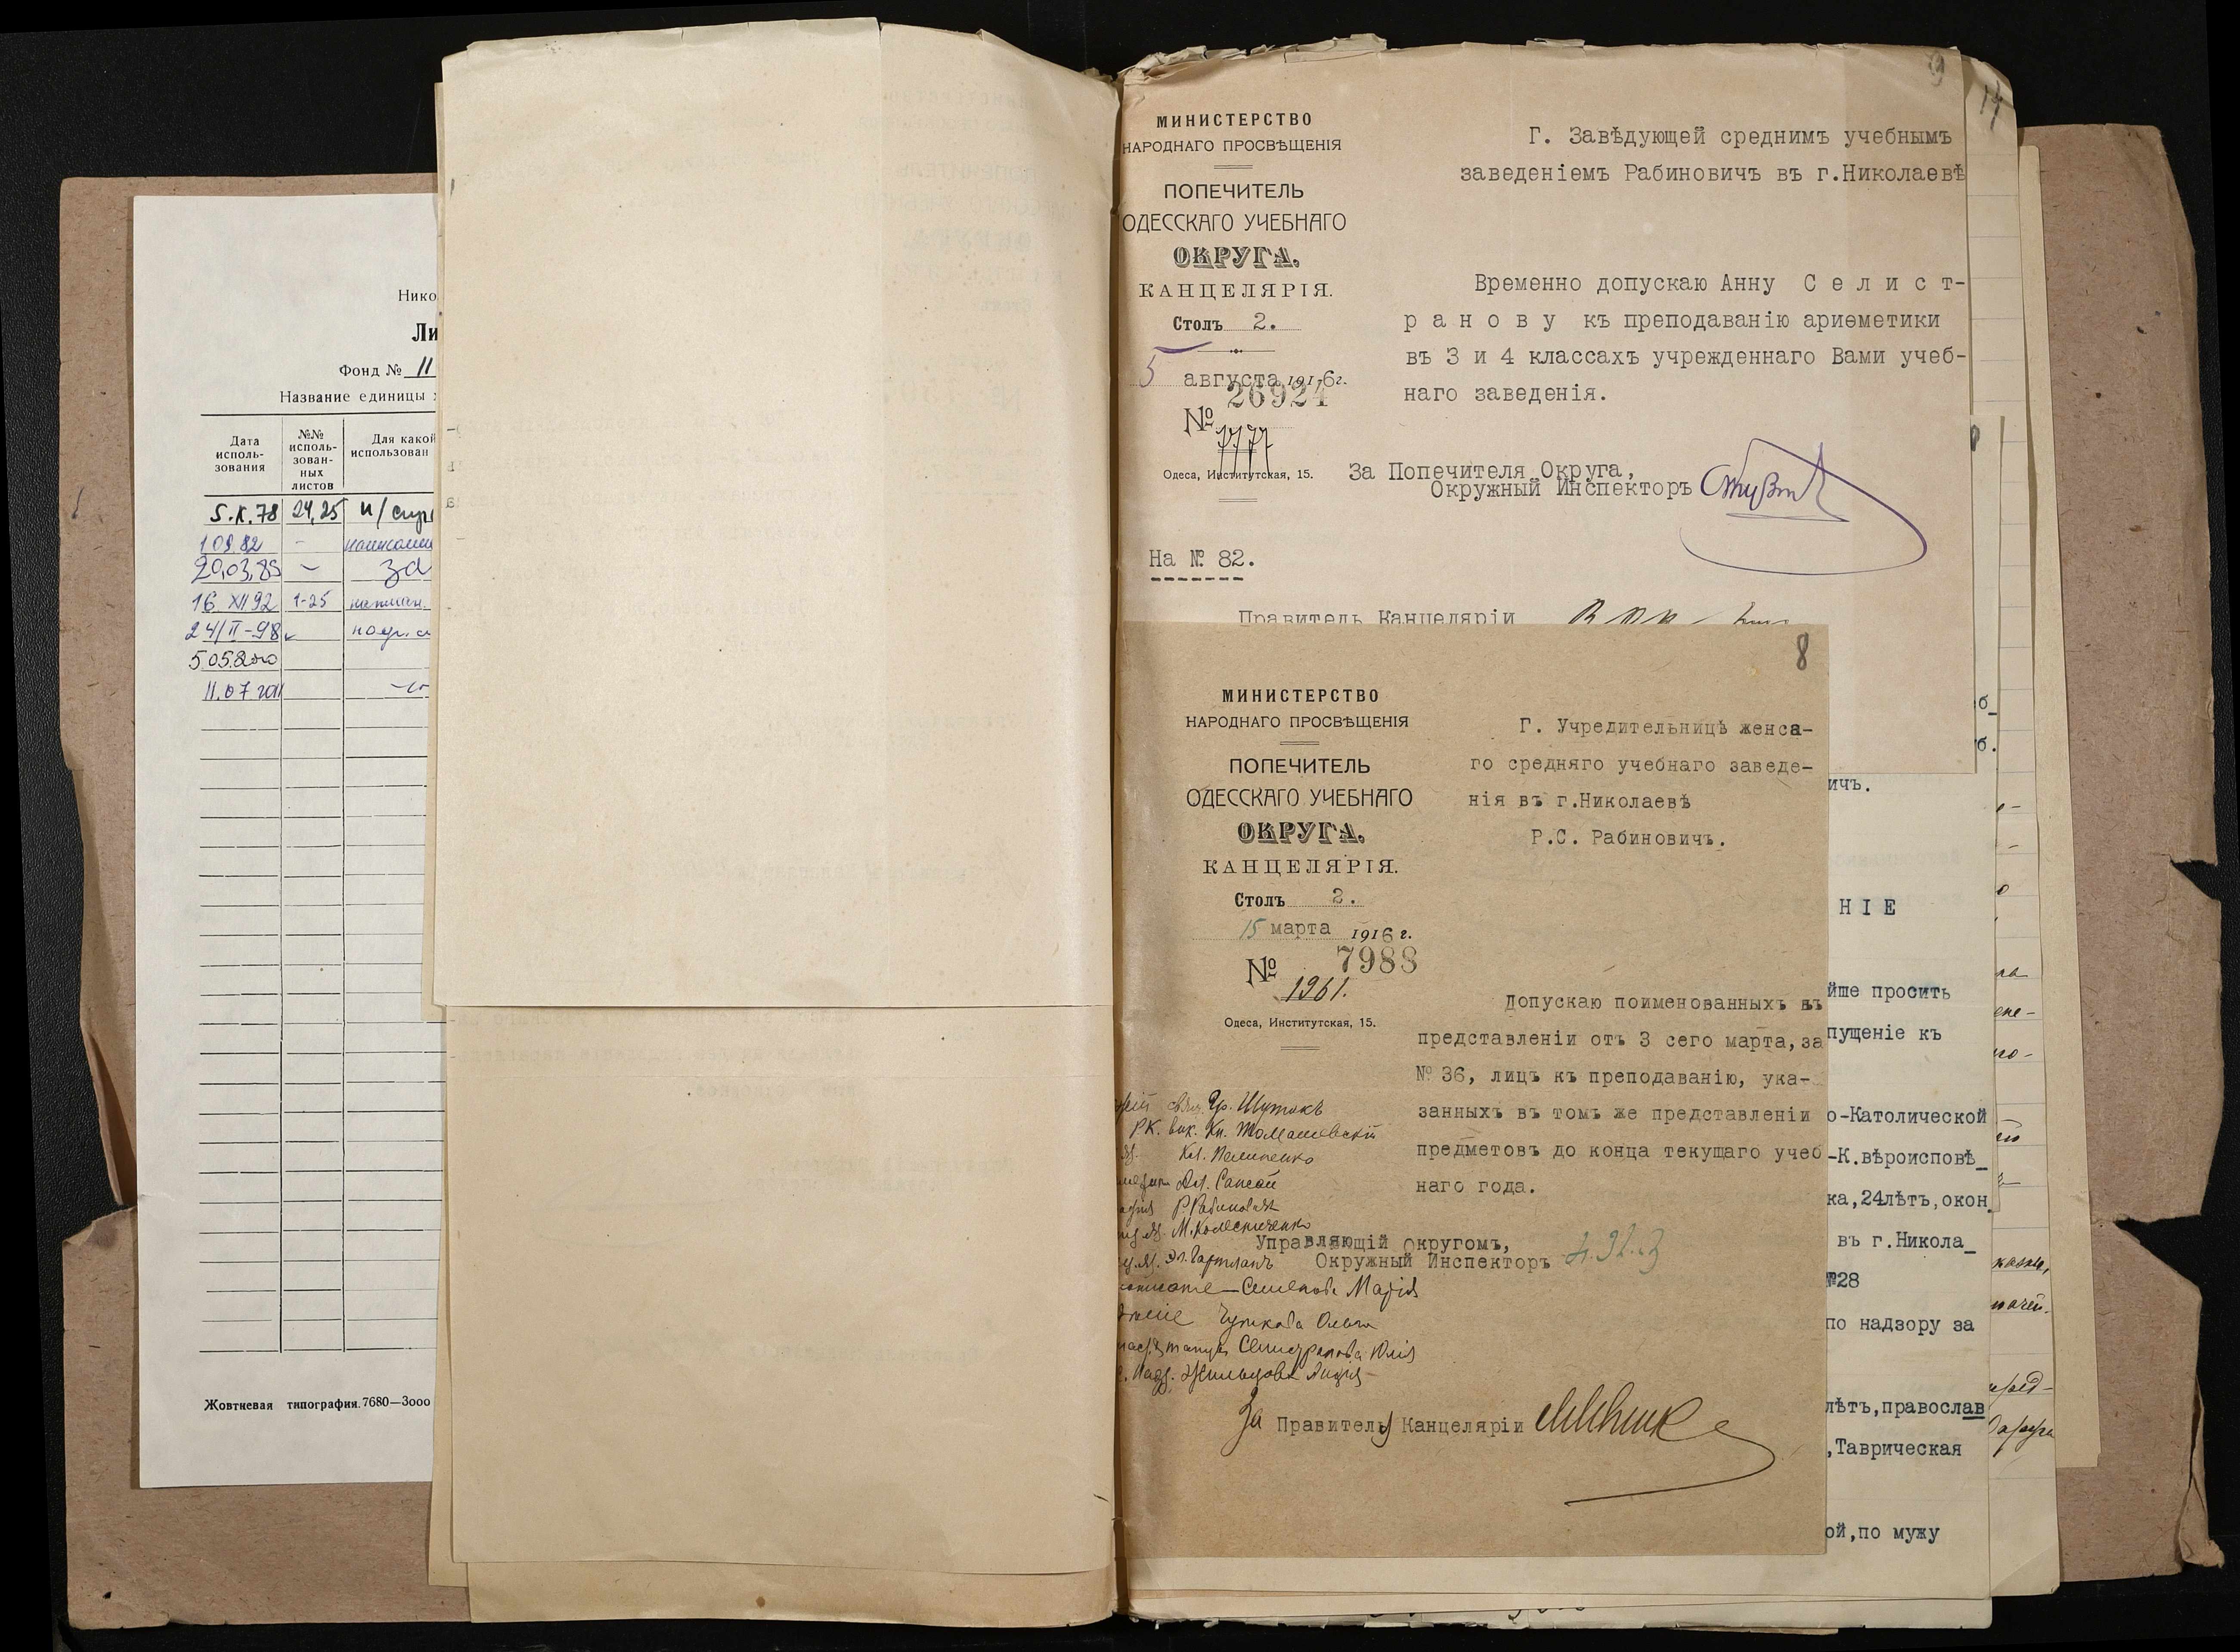 Нико
Ли
Фонд № 11
Название единицы
Дата исполь- зования
№№ исполь- зован- ных листов
Для какой использован
5.X.78 24,25
1.09.82 -
20.03.85 -
16 XII 92 1-25
24/II-98
505.2000
11.07 2011
Жовтневая типография. 7680—3000
9
14
МИНИСТЕРСТВО
НАРОДНАГО ПРОСВѢЩЕНІЯ
ПОПЕЧИТЕЛЬ
ОДЕССКАГО УЧЕБНАГО
ОКРУГА.
КАНЦЕЛЯРІЯ.
Столъ 2.
5 августа 1916г.
26924
№
Одеса, Институтская, 15.
На № 82.
Г. Завѣдующей среднимъ учебнымъ
заведеніемъ Рабиновичъ въ г.Николаевѣ
Временно допускаю Анну С е л и с т-
р а н о в у къ преподаванію ариѳметики
въ 3 и 4 классахъ учрежденнаго Вами учеб-
наго заведенія.
За Попечителя Округа,
Окружный Инспекторъ
Правитель Канцеляріи
8
МИНИСТЕРСТВО
НАРОДНАГО ПРОСВѢЩЕНІЯ
ПОПЕЧИТЕЛЬ
ОДЕССКАГО УЧЕБНАГО
ОКРУГА.
КАНЦЕЛЯРІЯ.
Столъ 2.
15 марта 1916 г.
№ 7988
1961.
Одеса, Институтская, 15.
Г. Учредительницѣ женса-
го средняго учебнаго заведе-
нія въ г.Николаевѣ
Р.С. Рабиновичъ.
Допускаю поименованныхъ въ
представленіи отъ 3 сего марта, за
№ 36, лицъ къ преподаванію, ука-
занныхъ въ томъ же представленіи
предметовъ до конца текущаго учеб
наго года.
свящ. Гр. Шутакъ
РК. вик. Кн. Томашевскій
Р. Рабиновичъ
М. Колесниченко
Эл. Гартманъ
Семенова Марія
Ольга
Селистранова Юлія
Управляющій Округомъ,
Окружный Инспекторъ
За Правителя Канцеляріи
б_
б.
ичъ.
НІЕ
йше просить
пущеніе къ
о-Католической
-К.вѣроисповѣ_
ка,24лѣтъ,окон.
въ г.Никола_
№28
по надзору за
лѣтъ,православ
,Таврическая
ой,по мужу